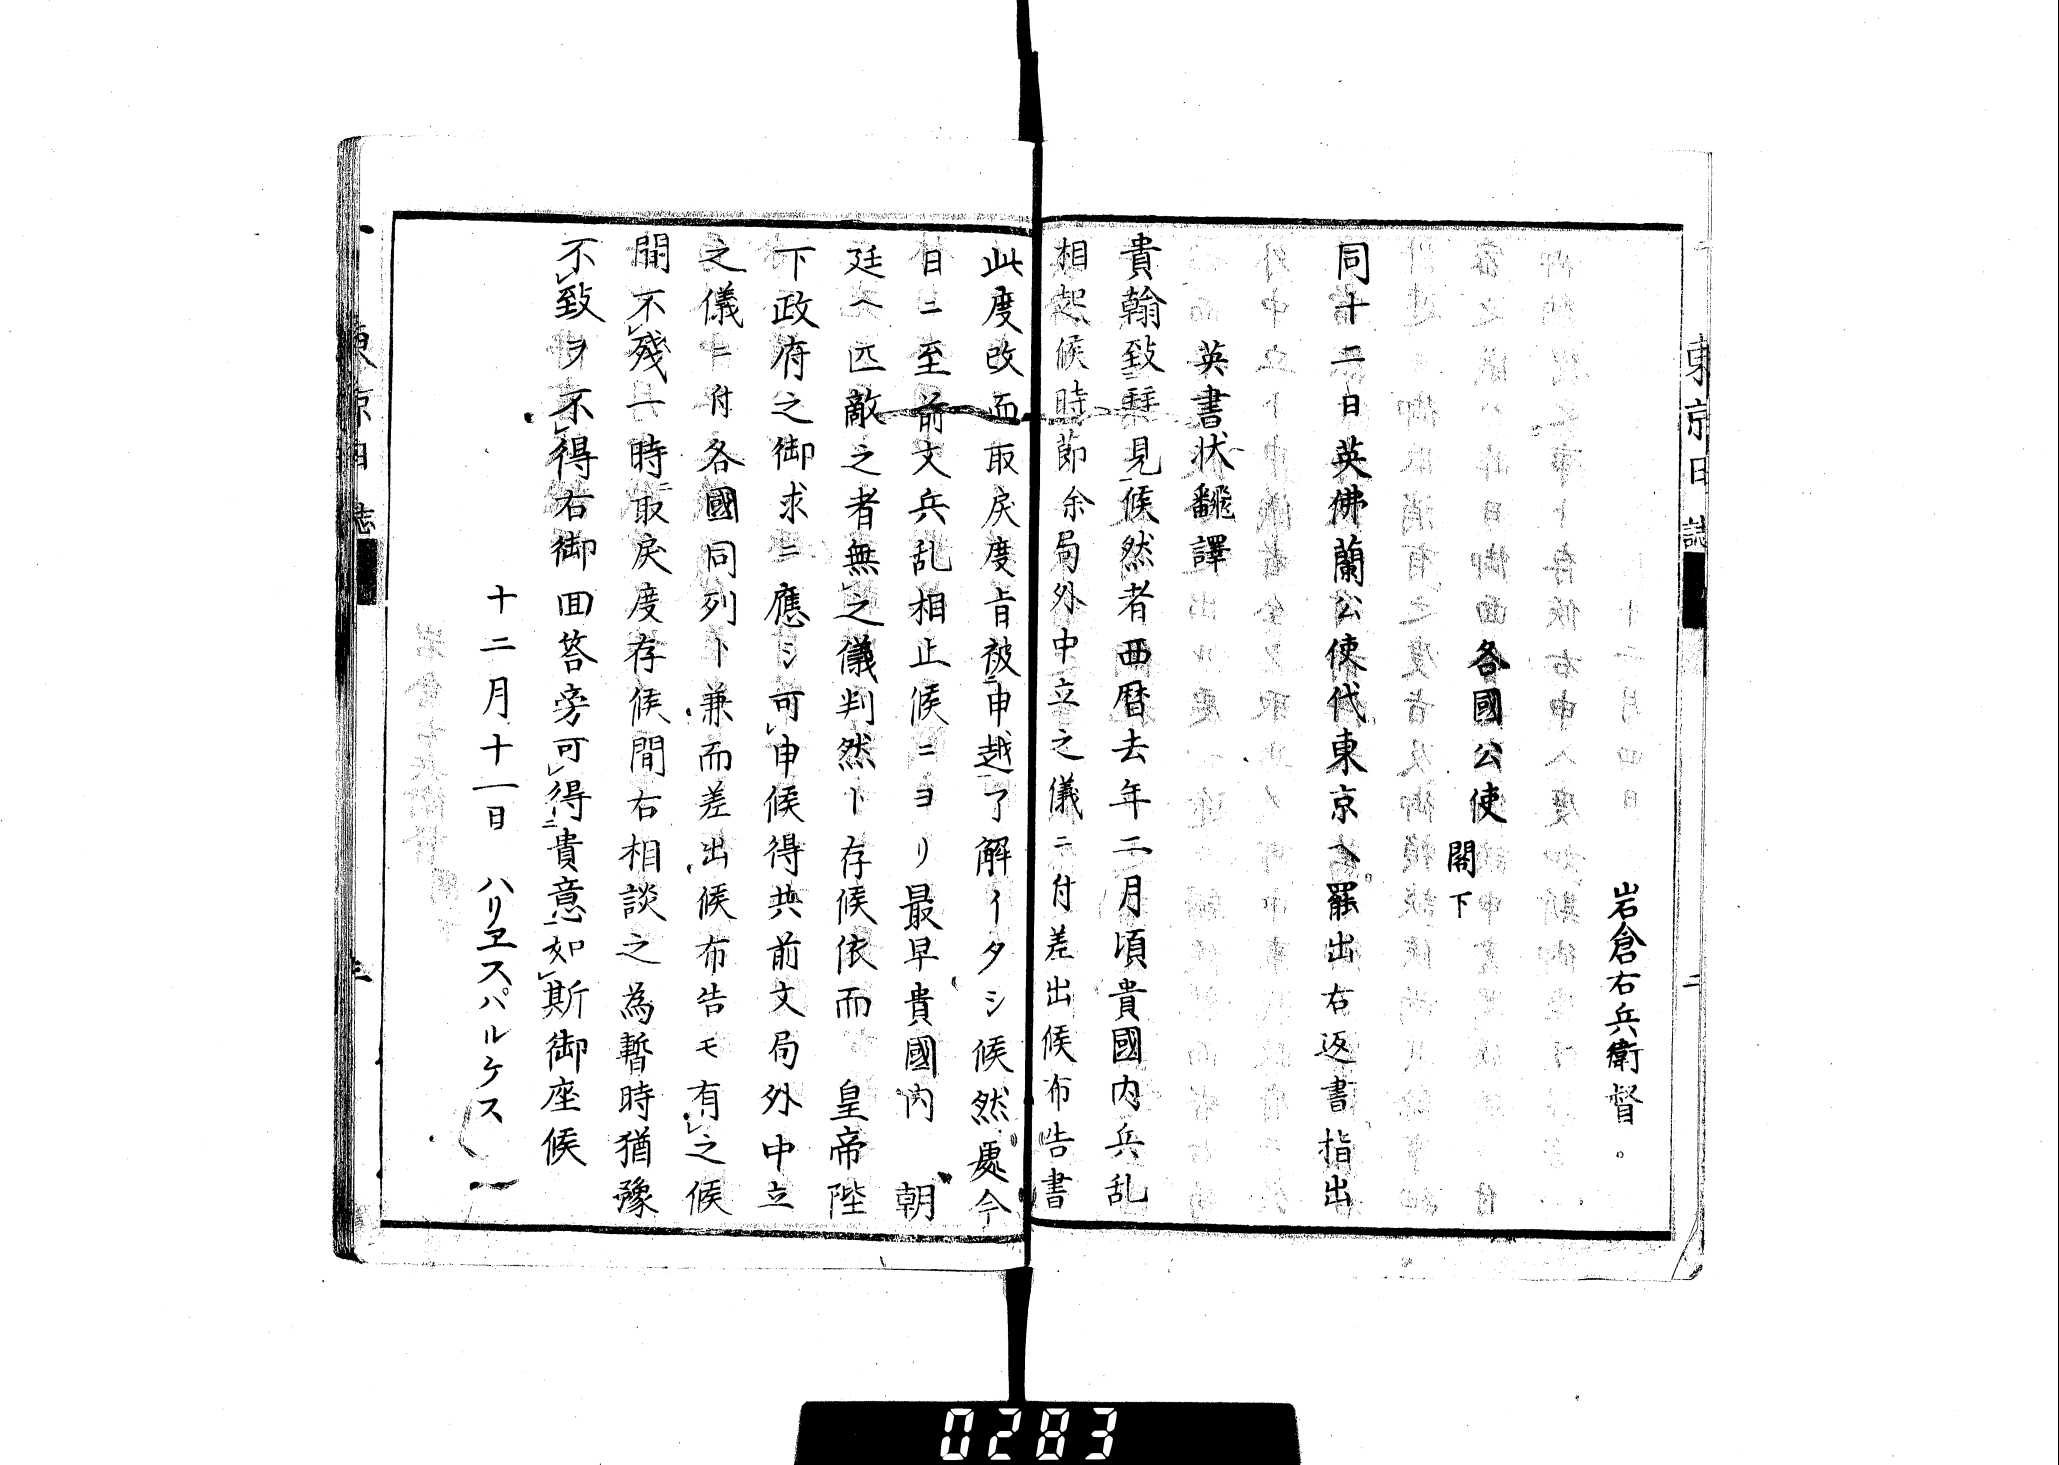 東京日誌
二
岩倉右兵衛督。
各國公使
閣下
同十二日英佛蘭公使代東京ヘ罷出右返書指出
英書状飜譯
貴翰致拜見候然者西暦去年二月頃貴國内兵乱
相起候時節余局外中立之儀ニ付差出候布告書
此度改而取戻度肯被ニ申越了解イタシ候然處今
日ニ至前文兵乱相止候ニヨリ最早貴國内 朝
廷ヘ匹敵之者無レ之儀判然ト存候依而 皇帝陛
下政府之御求ニ應シ可レ申候得共前文局外中立
之儀ニ付各國同列ト兼而差出候布告モ有レ之候
間不レ殘一時ニ取戻度存候間右相談之為暫時猶豫
不レ致ヲ不レ得右御回答旁可レ得ニ貴意一如レ斯御座候
十二月十一日 ハリヱスパルケス
東京日誌
三
0283